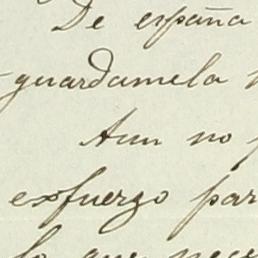 De españa
guardamela
Aun no
exfuerzo par
lo que nece